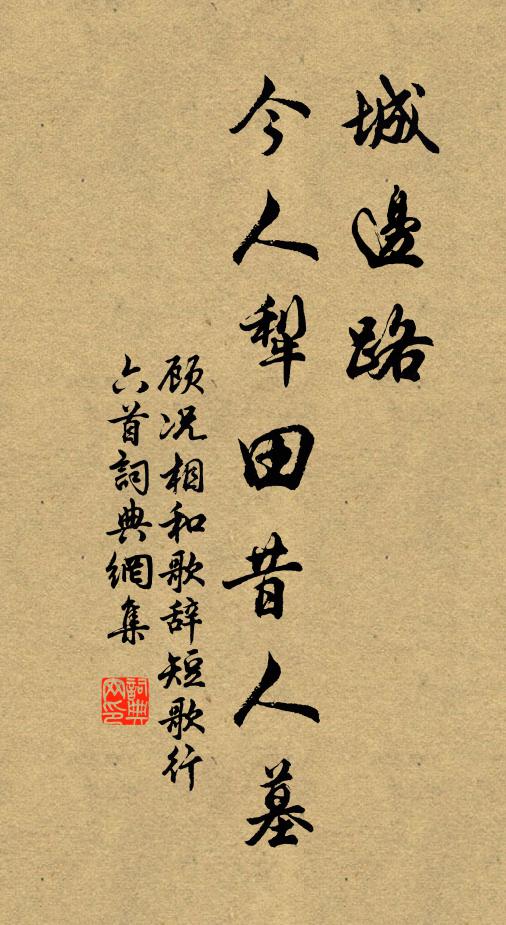 城邊路
今人犁田昔人墓
顾况相和歌辞短歌行
六首詞典網集
詞典网印